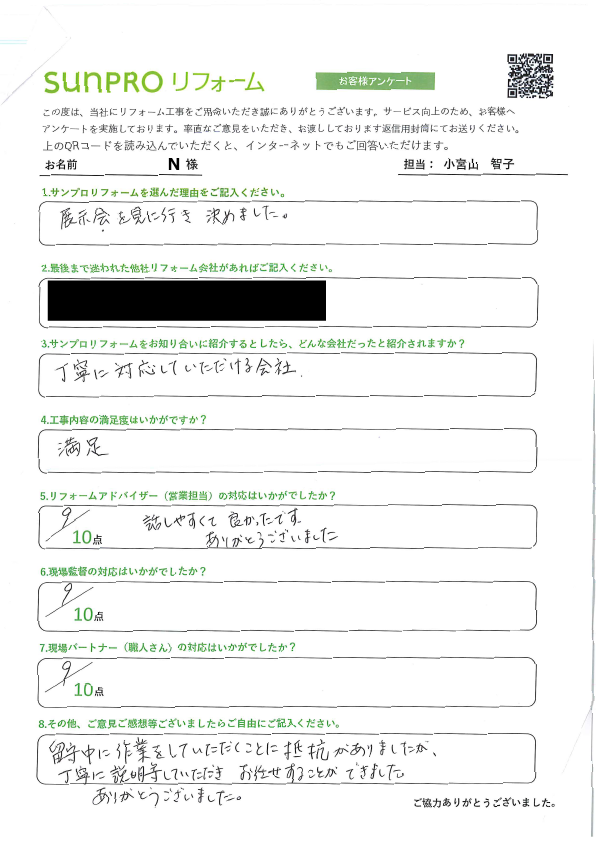 SUNPRO リフォーム
お客様アンケート
この度は、当社にリフォーム工事をご用命いただき誠にありがとうございます。サービス向上のため、お客様へ
アンケートを実施しております。率直なご意見をいただき、お渡ししております返信用封筒にてお送りください。
上のQRコードを読み込んでいただくと、インターネットでもご回答いただけます。
お名前 N 様 担当: 小宮山 智子
1.サンプロリフォームを選んだ理由をご記入ください。
展示会を見に行き 決めました。
2.最後まで迷われた他社リフォーム会社があればご記入ください。
3.サンプロリフォームをお知り合いに紹介するとしたら、どんな会社だったと紹介されますか?
丁寧に対応していただける会社.
4.工事内容の満足度はいかがですか?
満足
5.リフォームアドバイザー(営業担当)の対応はいかがでしたか?
9/10点 話しやすくて 良かったです
ありがとうございました
6.現場監督の対応はいかがでしたか?
9/10点
7.現場パートナー(職人さん)の対応はいかがでしたか?
9/10点
8.その他、ご意見ご感想等ございましたらご自由にご記入ください。
留守中に作業をしていただくことに抵抗がありましたが、
丁寧に説明等していただき お任せすることができました
ありがとうございました。
ご協力ありがとうございました。